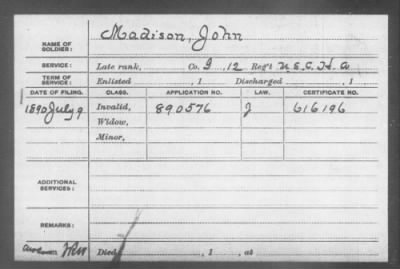 NAME OF SOLDIER: Madison, John
SERVICE: Late rank, Co. G, 12 Reg't U.S.C.H.A
TERM OF SERVICE: Enlisted , 1 Discharged , 1
DATE OF FILING. CLASS. APPLICATION NO. LAW. CERTIFICATE NO.
1890 July 9 Invalid, 890576 J 616196
Widow,
Minor,
ADDITIONAL SERVICES:
REMARKS:
Died , 1 , at